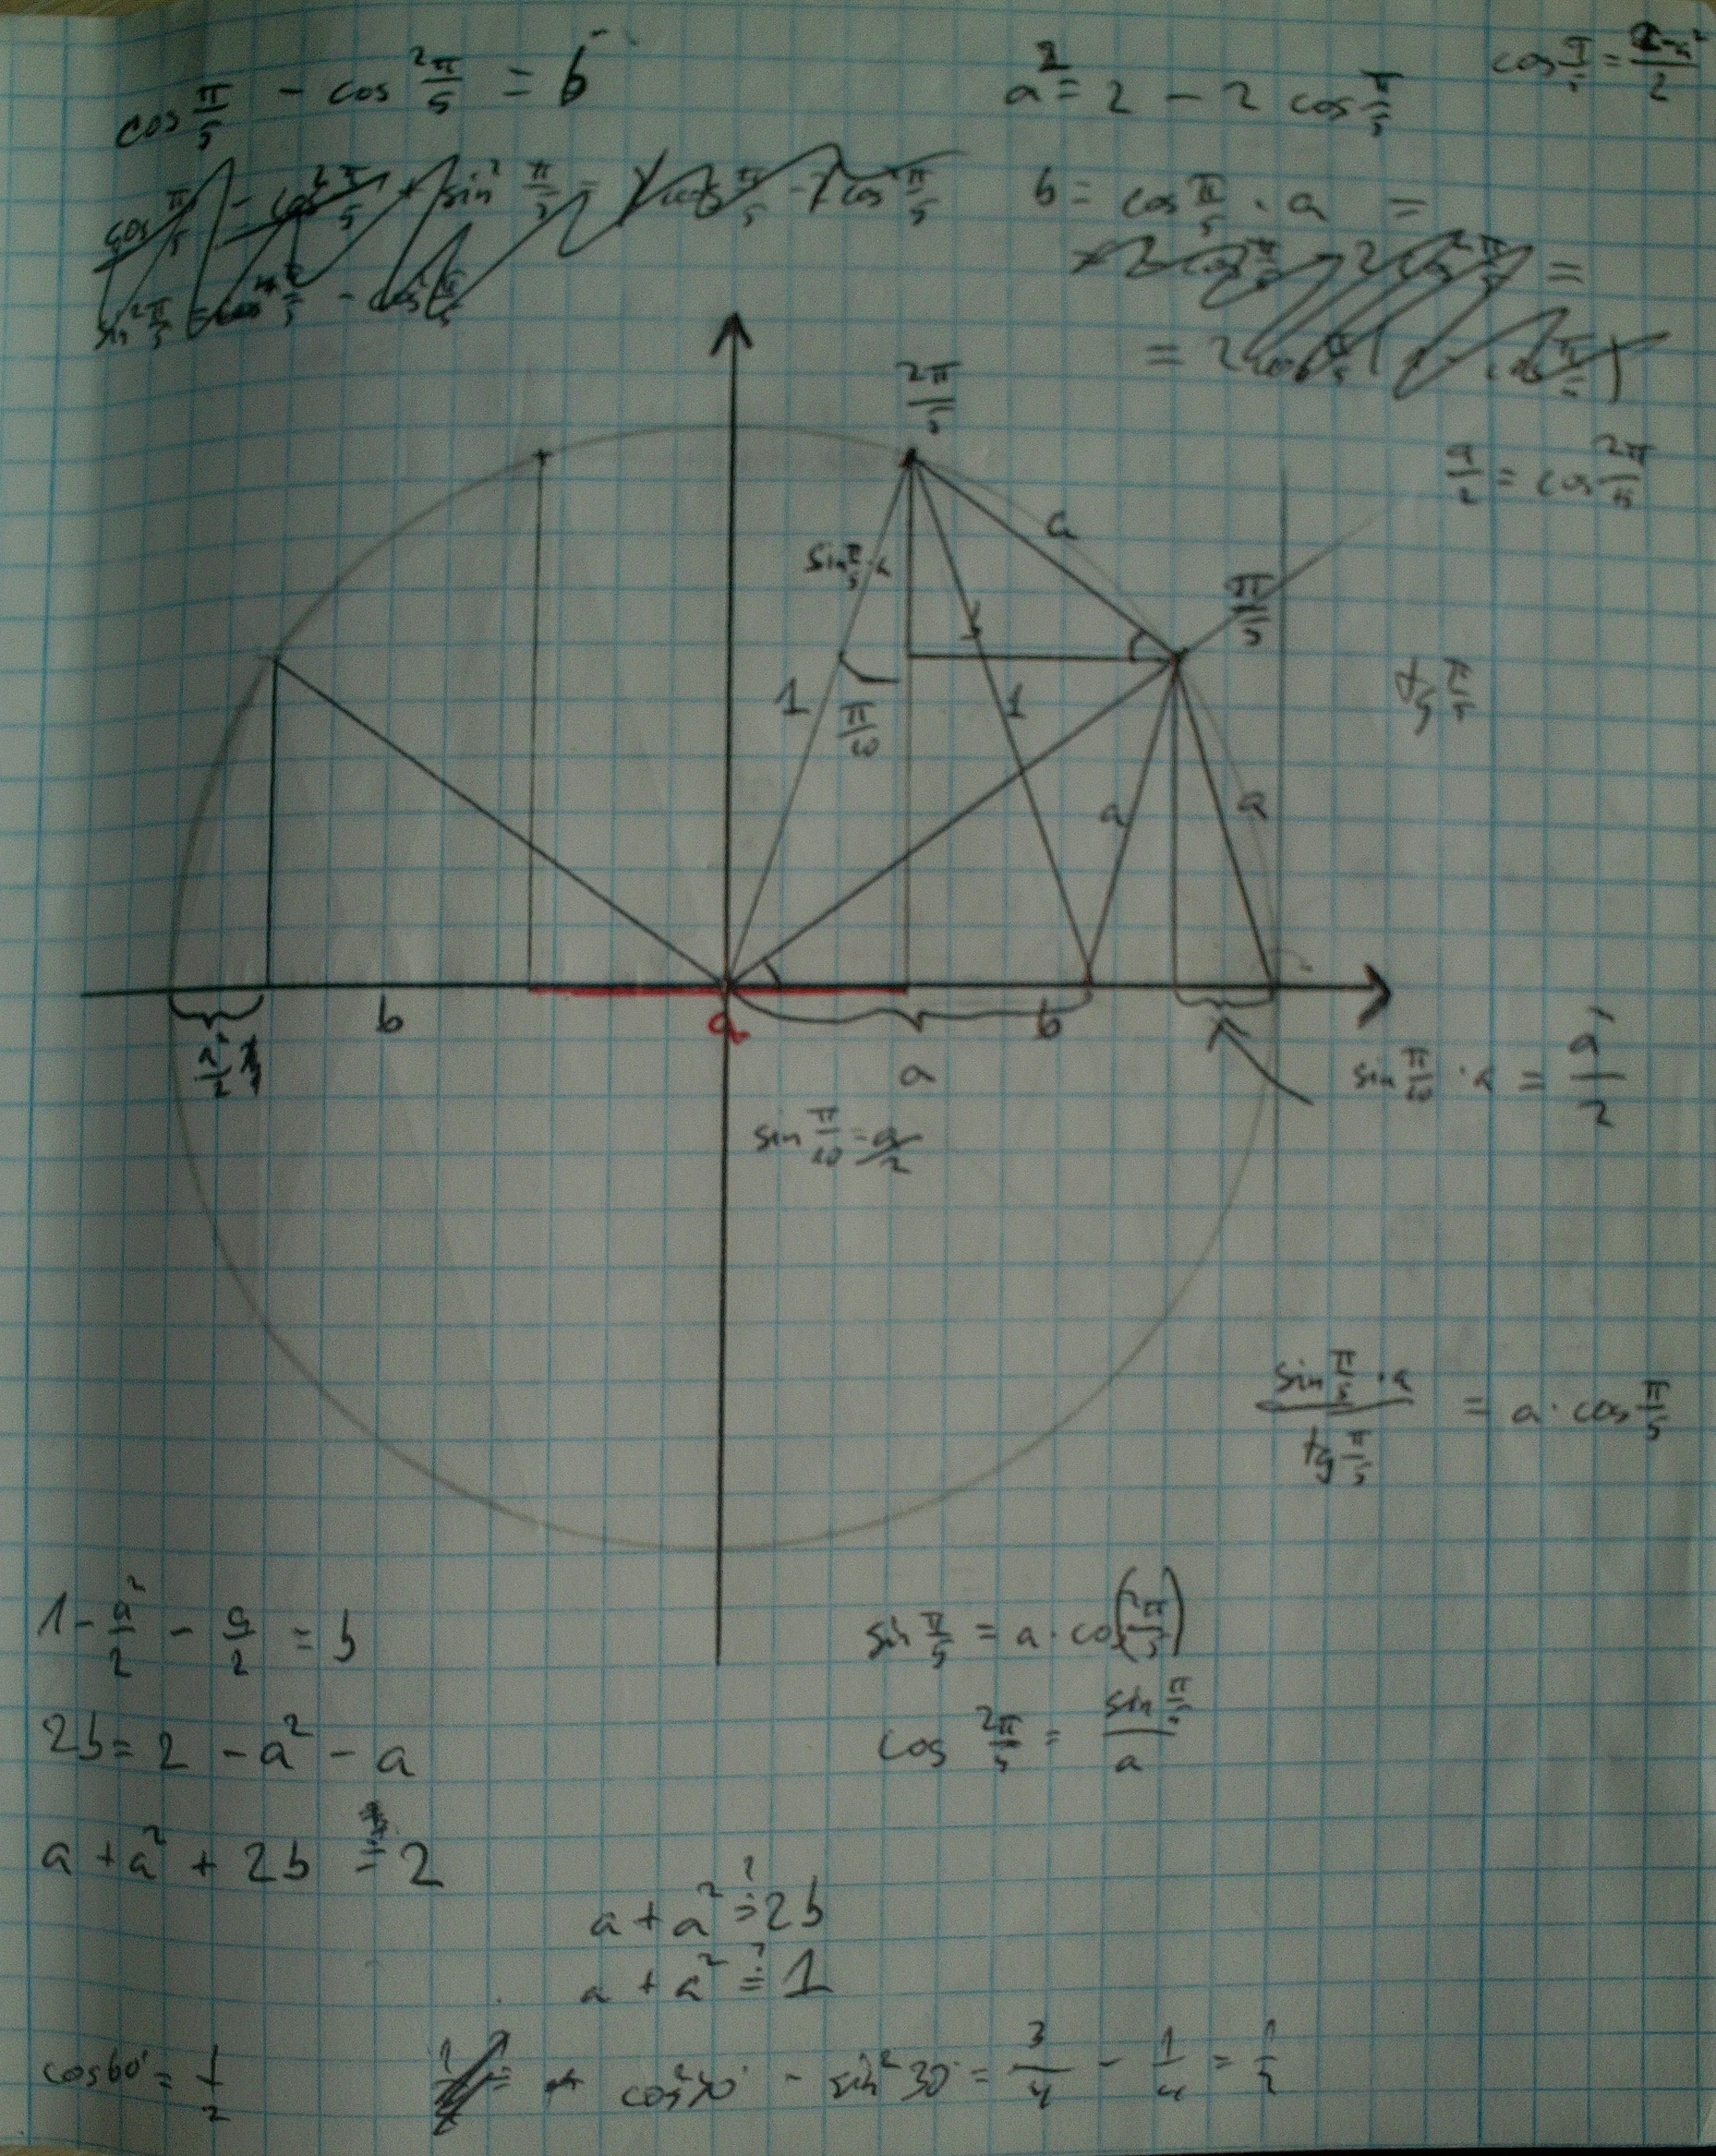 cos π/5 - cos 2π/5 = b
a² = 2 - 2 cos π/5
b = cos π/5 · a =
a/2 = cos 2π/5
2π/5
a
sin π/5 · a
π/5
tg π/5
1
π/10
1
a
a
b
a
b
x
a²/2
a
sin π/10 · a = a²/2
sin π/10 = a/2
sin π/5 · a / tg π/5 = a · cos π/5
1 - a²/2 - a/2 = b
sin π/5 = a · cos
2b = 2 - a² - a
cos 2π/5 = sin π/5 / a
a + a² + 2b = 2
a + a² ?= 2b
a + a² ?= 1
cos60° = 1/2
cos²30° - sin²30° = 3/4 - 1/4 = 1/2